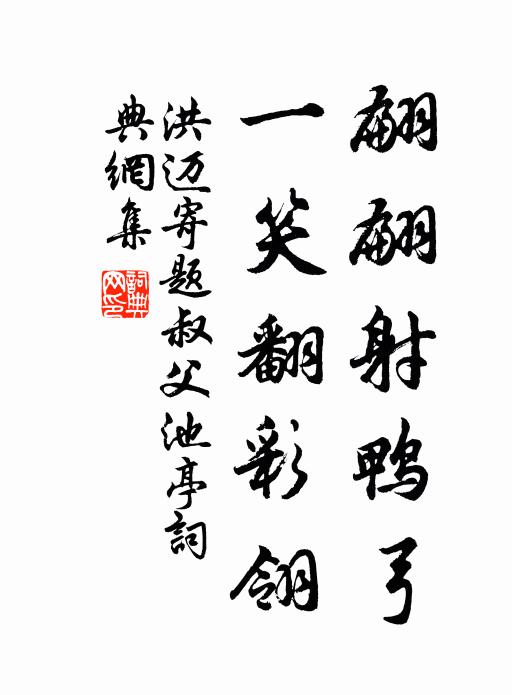 翩翩射鸭弓
一笑翻彩翎
洪迈寄题叔父池亭詞
典網集
詞典网印